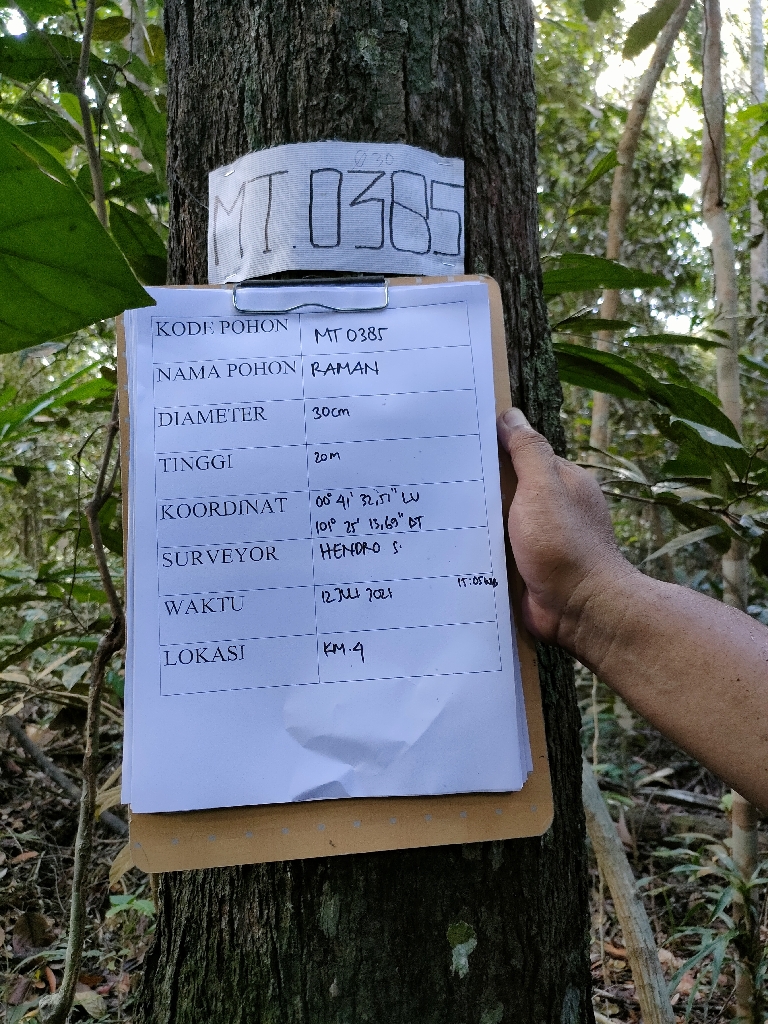 030
MT.0385
KODE POHON MT 0385
NAMA POHON RAMAN
DIAMETER 30cm
TINGGI 20m
KOORDINAT 00° 41' 32,51" LU
101° 25' 13,69" BT
SURVEYOR HENDRO S.
WAKTU 12 JULI 2021 15:05 WIB
LOKASI KM.4